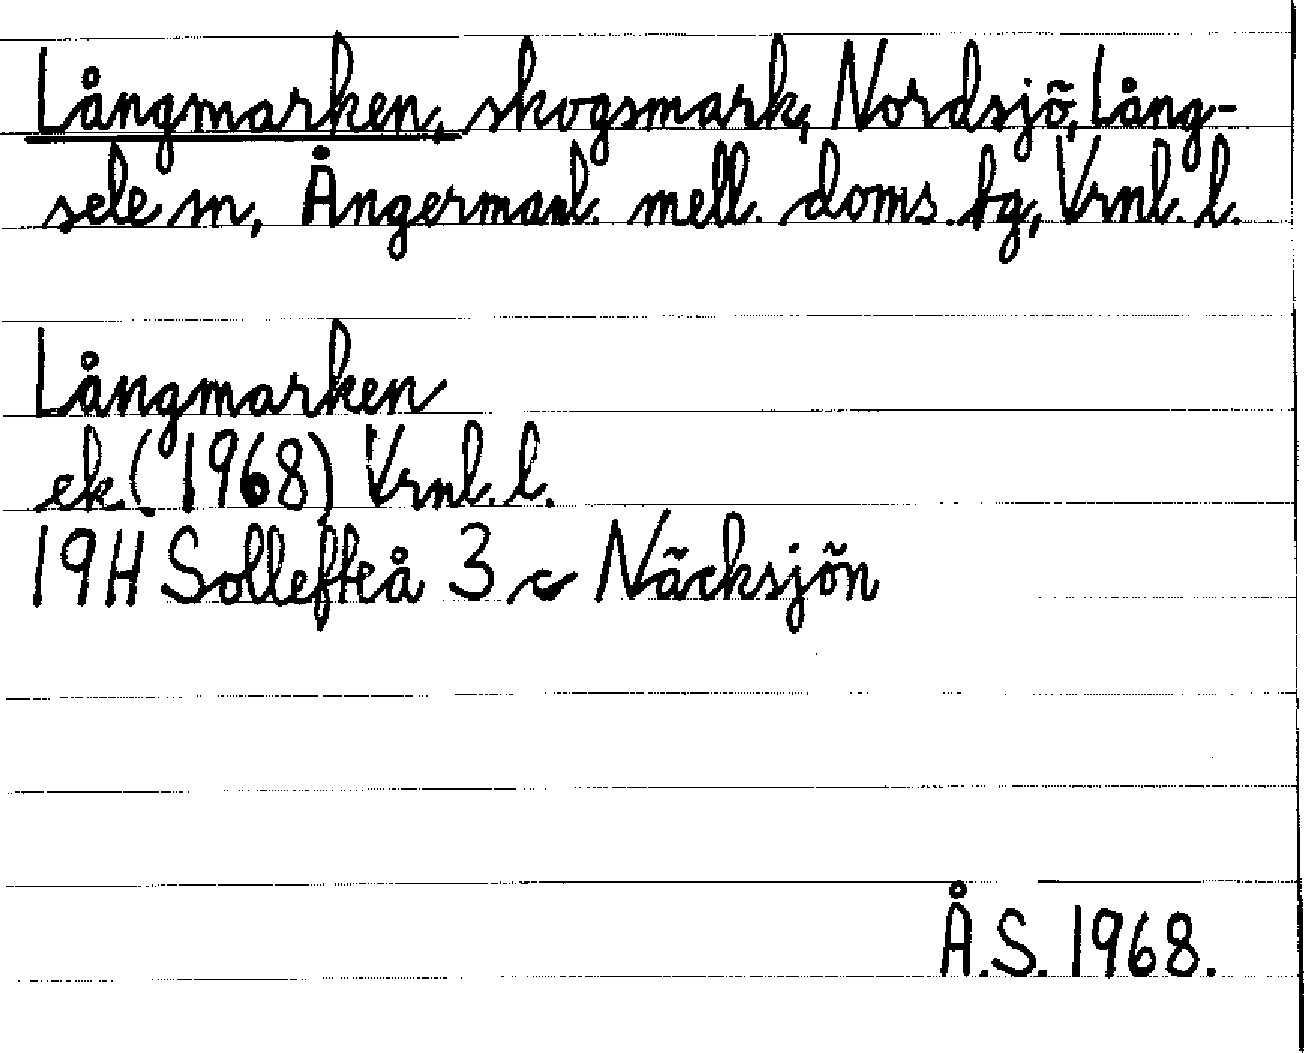 Långmarken, skogsmark, Nordsjö, Lång-
sele sn, Ångermanl. mell. doms. tg, Vrnl. l.
Långmarken
ek. (1968) Vrnl. l.
19H Sollefteå 3 c Näcksjön
Å.S. 1968.